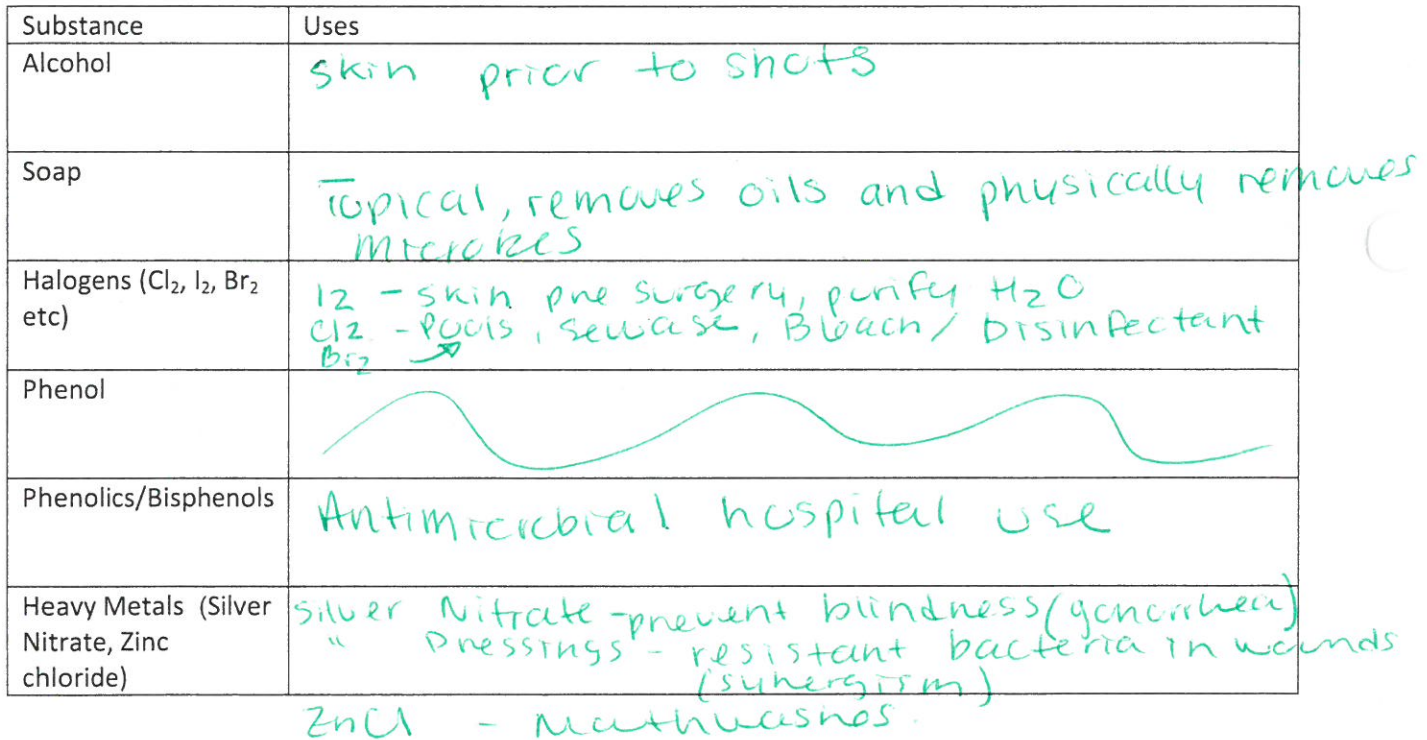 Substance Uses
Alcohol skin prior to shots
Soap Topical, removes oils and physically removes
microbes
Halogens (Cl₂, I₂, Br₂ I2 - skin pre surgery, purify H₂O
etc) Cl2 - Pools, sewage, Bleach / Disinfectant
Br₂
Phenol
Phenolics/Bisphenols Antimicrobial hospital use
Heavy Metals (Silver Silver Nitrate - prevent blindness (gonorrhea)
Nitrate, Zinc " Dressings - resistant bacteria in wounds
chloride) (synergism)
ZnCl - Mouthwashes.